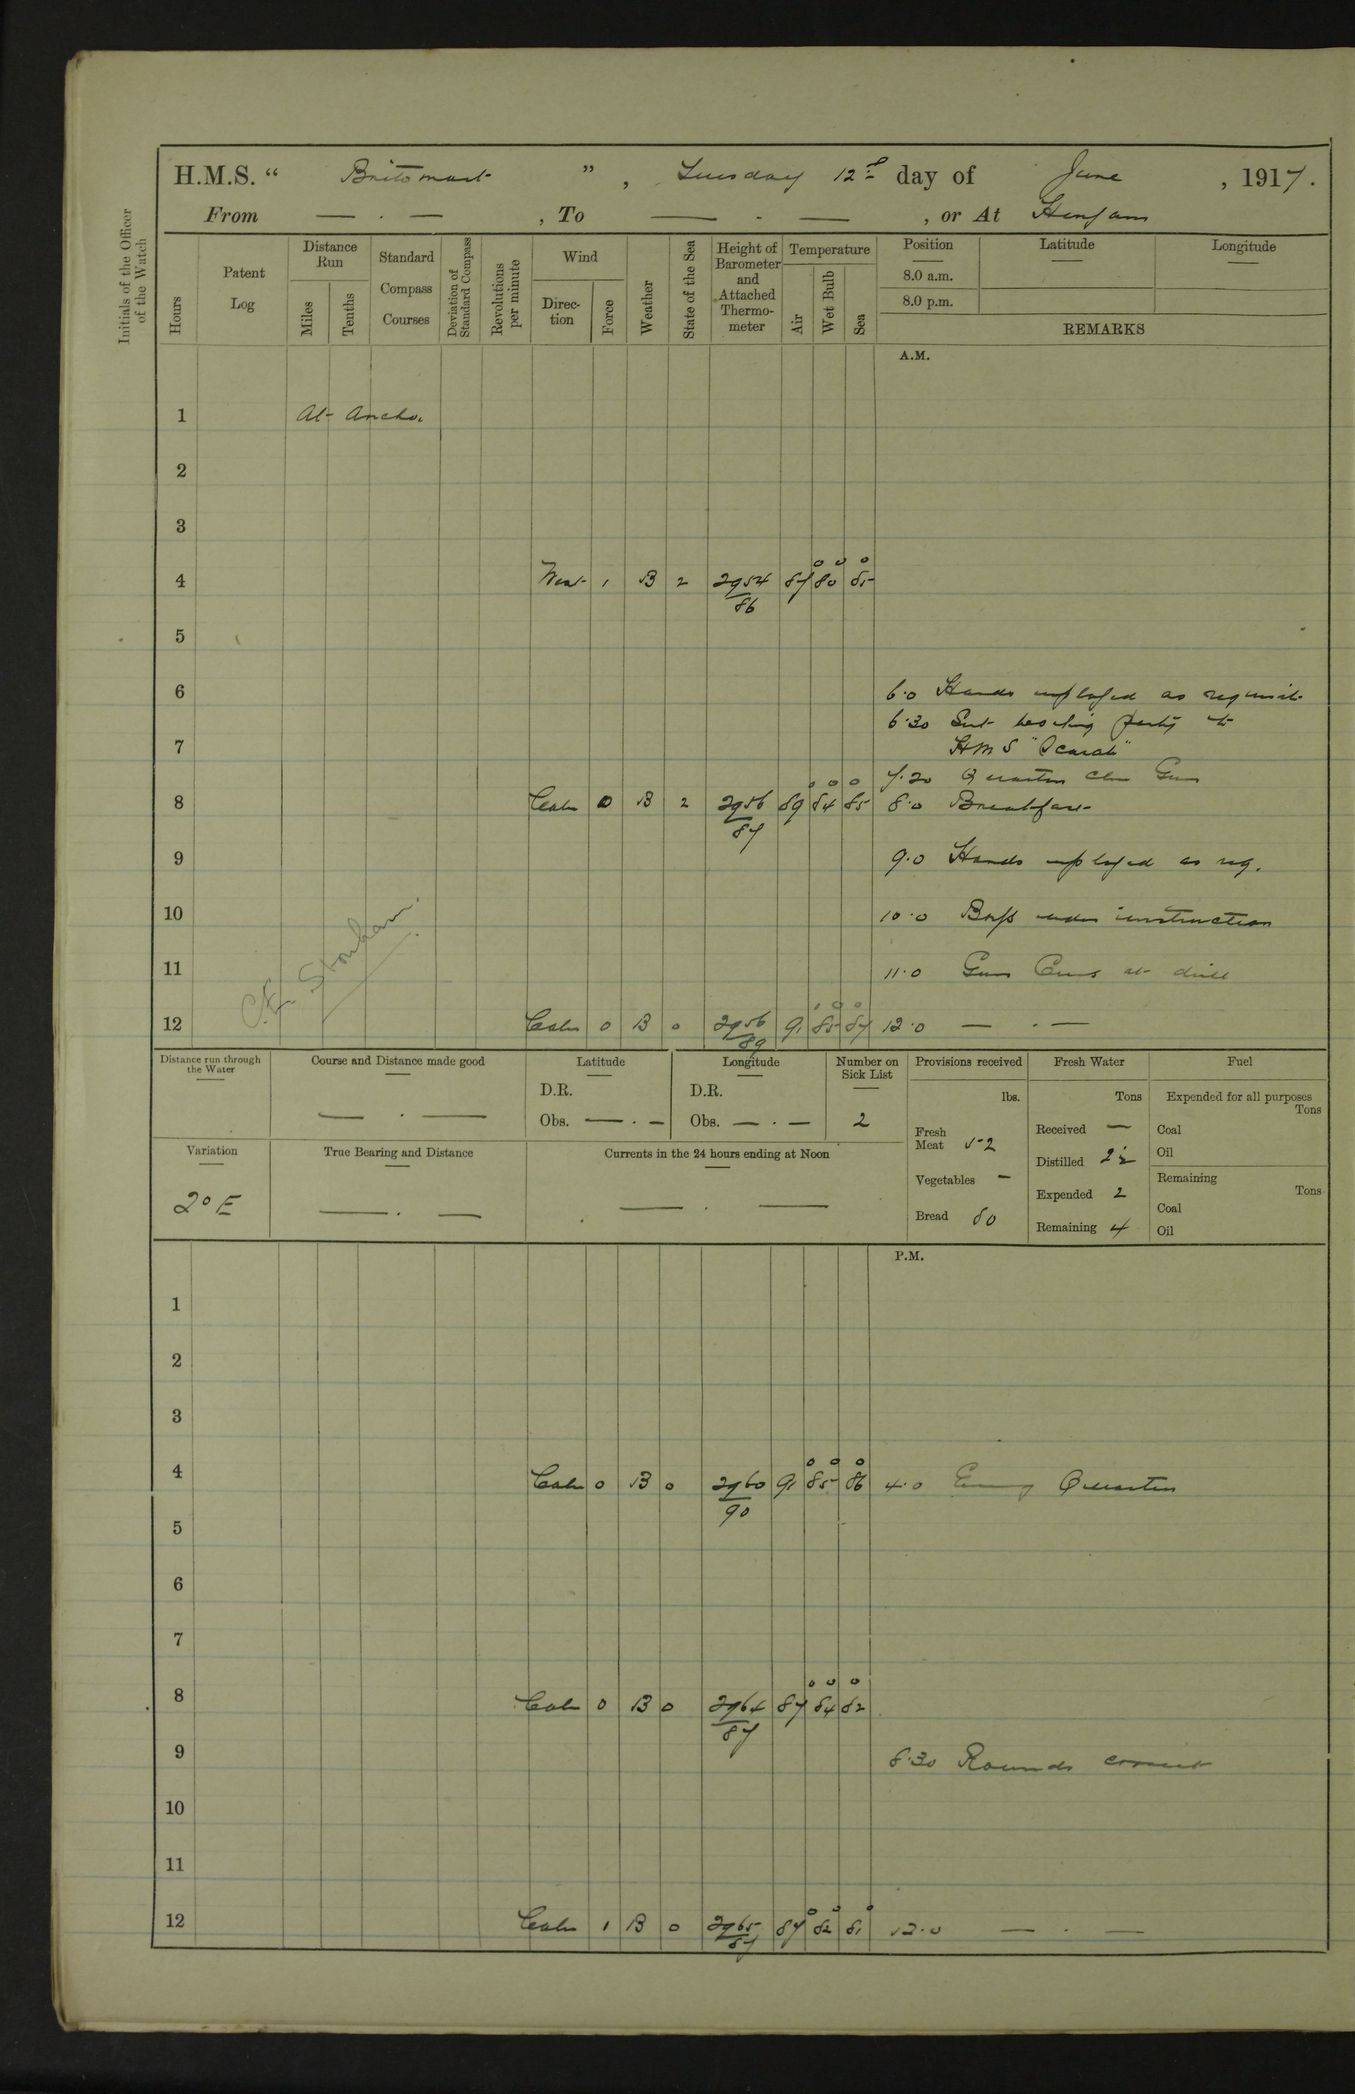 H.M.S. “ Britomart ”, Tuesday 12th day of June, 1917.
From — . — , To — . — , or At Henjam
Initials of the Officer of the Watch
Hours
Patent Log
Distance Run
Miles
Tenths
Standard Compass Courses
Deviation of Standard Compass
Revolutions per minute
Wind
Direction
Force
Weather
State of the Sea
Height of Barometer and Attached Thermometer
Temperature
Air
Wet Bulb
Sea
Position
8.0 a.m.
8.0 p.m.
Latitude
Longitude
REMARKS
A.M.
1 At Anchor
2
3
4 West 1 B 2 2954/86 87 80° 85°
5
6 6.0 Hands employed as requisite
6.30 Sent boarding party to
7 H M S "Scarab"
7.20 Quarters clean Guns
8 Calm 0 B 2 2956/87 89 84 85 8.0 Breakfast
9 9.0 Hands employed as req.
10 10.0 Boys under instruction
11 11.0 Guns Crews at drill
12 Calm 0 B 0 2956/89 91 85 87 12.0 — . —
Distance run through the Water
Course and Distance made good
— . —
Latitude
D.R.
Obs. — . —
Longitude
D.R.
Obs. — . —
Number on Sick List
2
Provisions received
lbs.
Fresh Meat 52
Vegetables —
Bread 80
Fresh Water
Tons
Received —
Distilled 2½
Expended 2
Remaining 4
Fuel
Expended for all purposes
Tons
Coal
Oil
Remaining
Tons
Coal
Oil
Variation
2° E
True Bearing and Distance
— . —
Currents in the 24 hours ending at Noon
— . —
P.M.
1
2
3
4 Calm 0 B 0 2960/90 91 85 86 4.0 Evening Quarters
5
6
7
8 Calm 0 B 0 2964/87 87 84 82
9 8.30 Rounds correct
10
11
12 Calm 1 B 0 2965/87 87 82 81 12.0 — . —